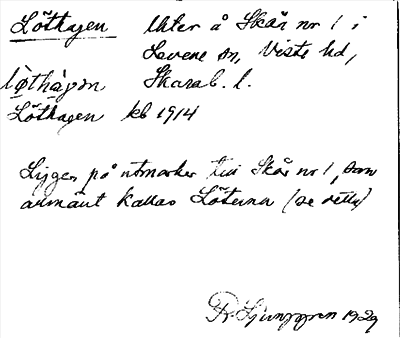 Löthagen Uter å Skår nr 1 i
Levene sn, Viste hd,
löthàgon Skarab. l.
Löthagen kb 1914
Ligger på utmarker till Skår nr 1, som
allmänt kallas Löterna (se detta)
Fr. Ljunggren 1929